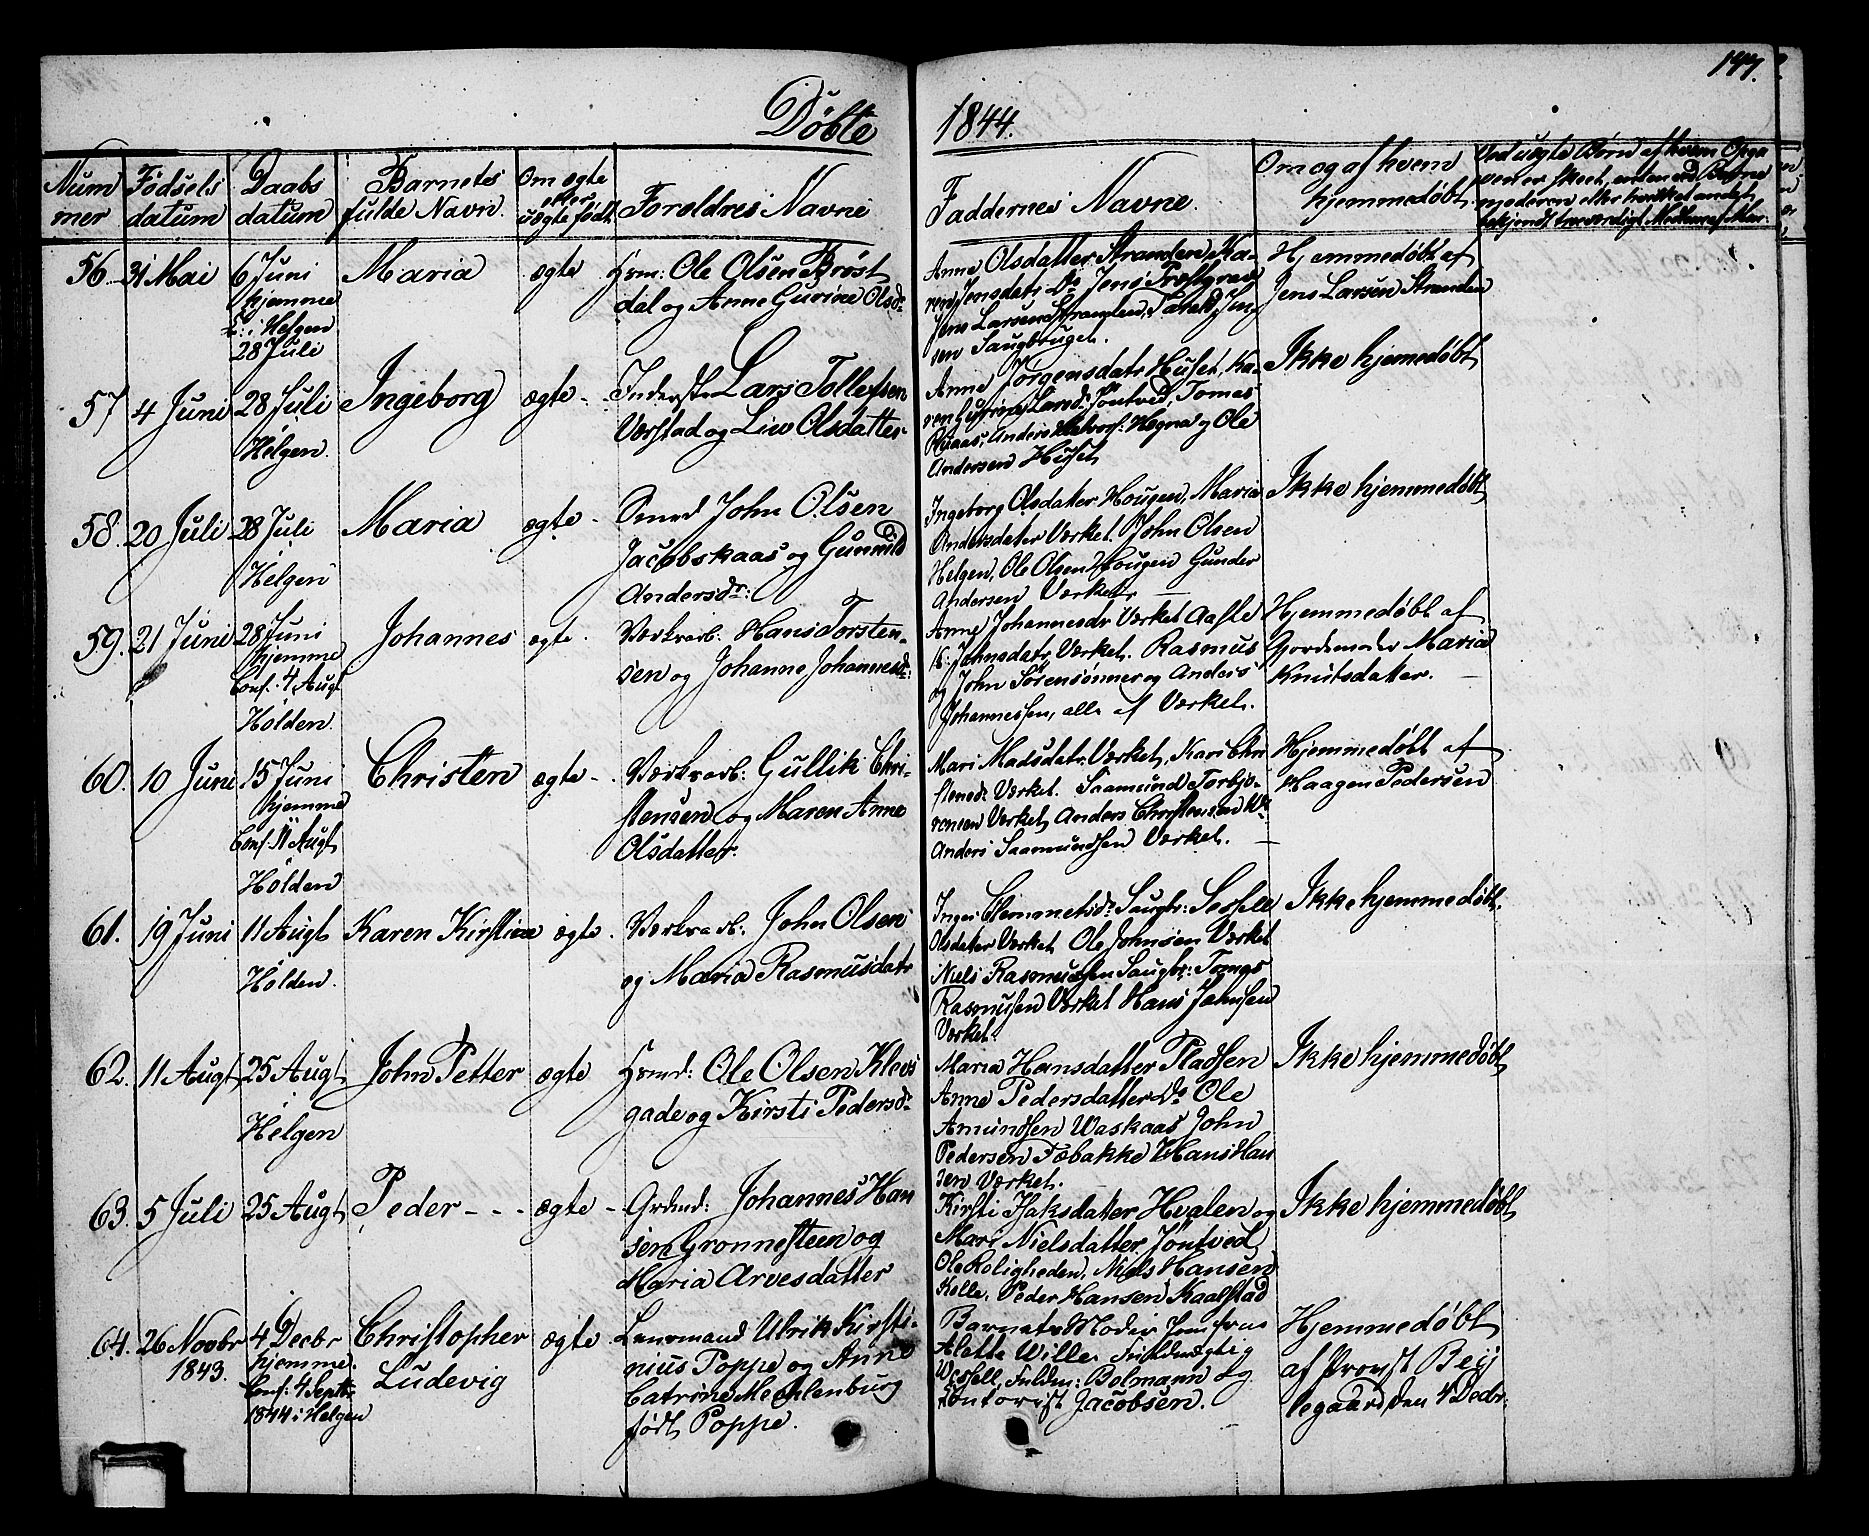 177.
Døbte 1844.
Nummer
Fødsels datum
Daabs datum
Barnets fulde Navn.
Om ægte eller uægte født.
Foreldres Navne
Faddernes Navne.
Om og af hvem hjemmedøbt.
Ved uægte Børn af hvem Opgaven er skeet, enten ved
moderen eller hvilket andet
bekjendt troværdigt
56.
31 Mai
6 Juni
hjemme
i Helgen
28 Juli
Maria
ægte
Ole Olsen Brøst
dal og Anne Gurine Olsdr
Anne Olsdatter Stranden, Ka-
ren Jensdatr Do Jens
Jens Larsen Stranden, Jen
sen Saugbruget.
Hjemmedøbt af
Jens Larsen Stranden
57
4 Juni
28 Juli
Helgen.
Ingeborg
ægte -
Inderste Lars Tollefsen
Værstad og Liv Olsdatter.
Anne Jørgensdatr Huset, Ka-
ren Gurine Larsdr Jontved, Tomes
Anders Halvors: Hegna og Ole
Andersen Huset
Ikke hjemedøbt
58.
20 Juli
28 Juli
Helgen
Maria
ægte -
Smed John Olsen
Jacobskaas og Gunnild
Andersdr:
Ingeborg Olsdatter Hougen, Maria
Andersdater Værket. John Olsen
Helgen, Ole Olsen Hougen Gunder
Andersen Værket, —
Ikke hjemmedøbt
59.
21 Juni
28 Juni
hjemme
Conf. 4 Augt
Holden.
Johannes
ægte.
Værkarb. Hans Torsten-
sen og Johanne Johannesdr:
Anne Johannesdr Værket Aasle
K: Jahnsdatr Værket. Rasmus
og John Sørensønner og Anders
Johannessen, alle af Værket.
Hjemmedøbt af
Jordemoder Maria
Knutsdatter. —
60.
10 Juni
15 Juni
hjemme
Conf. 11 Augt
Holden
Christen
ægte -
Værkarb: Gullik Chri-
stensen og Maren Anne
Olsdatter.
Mari Madsdatr Værket, Kari Chri
stensdr Værket. Saamund Torbjø-
rensen Værket Anders Christensen Vk:
Anders Saamundsen Værket. —
Hjemmedøbt af
Haagen Pedersen
61.
19 Juni
11 Augt
Holden.
Karen Kirstine
ægte.
Værkarb: John Olsen
og Maria Rasmusdatr
Inger Clemmetsdr Saugbr: Sessele
Olsdater Værket Ole Johnsen Værket
Niels Rasmussen Saugbr: Tomes
Rasmusen Værket Hans Jahnsen
Værket
Ikke hjemmedøbt.
62.
11 Augt
25 Augt
Helgen
John Petter
ægte
Ole Olsen Klevs
gade og Kirsti Pedersdr
Maria Hansdatter Pladsen
Anne Pedersdatter Do Ole
Amundsen Waskaas John
Pedersen Fæbakke Hans Han
sen Værket.
Ikke hjemmedøbt
63.
5 Juli
25 Augt
Peder - - -
ægte -
Johannes Han
sen Grønnesteen og
Maria Arvesdatter
Kirsti Isaksdatter Hvalen og
Mari Nielsdatter Jontved
Ole Roligheden, Niels Hansen
Kolle, Peder Hansen Kaasstad
Ikke hjemmedøbt
64.
26 Novbr
1843.
4 Decbr
hjemme.
Conf: 4 Septr
1844 i Helgen
Christopher
Ludevig
ægte
Lensmand Ulrik Kirsti-
nius Poppe og Anne
Catrine Mechlenburg
født Poppe.
Barnets Moder Jomfrue
Alette Wille. Fuldmægtig
Wessell, Fuldm: Bolmann og
Contorist Jacobsen.
Hjemmedøbt
af Provst Beij
legaard den 4 Decbr.